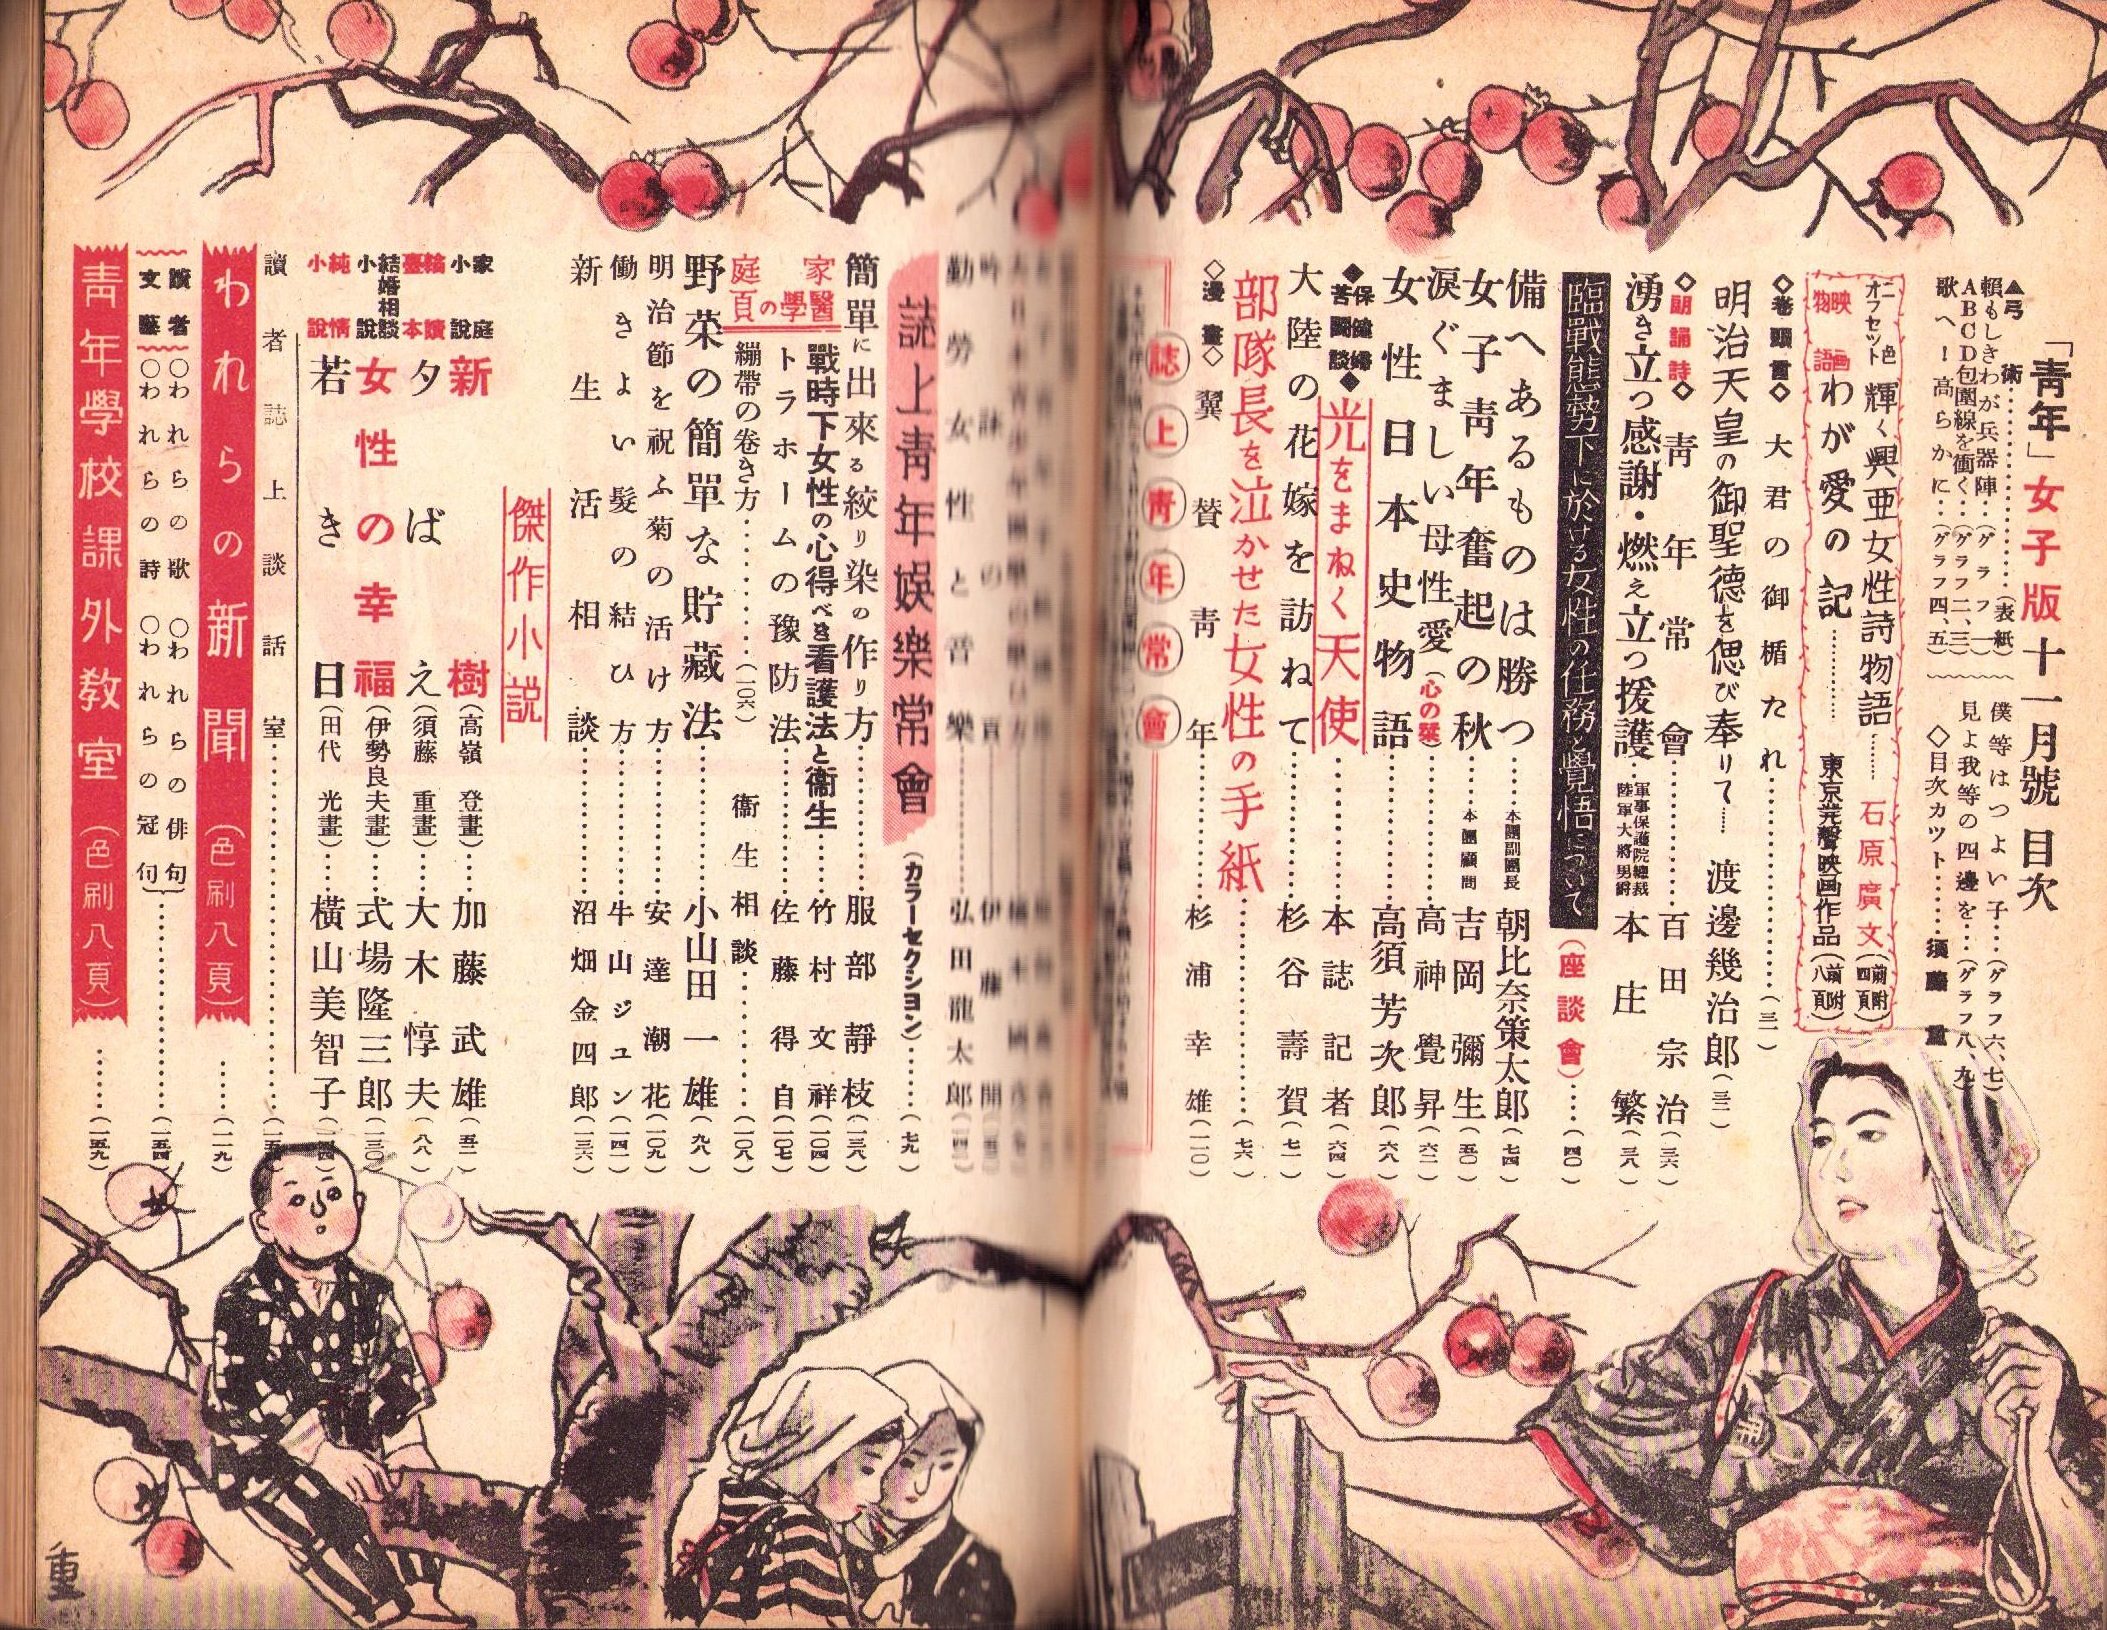 「靑年」女子版十一月號 目次
▲弓 術……………(表紙)
賴もしきわが兵器陣…(グラフ一)
ABCD包圍線を衝く…(グラフ二、三)
歌へ!高らかに…(グラフ四、五)
僕等はつよい子…(グラフ六、七)
見よ我等の四邊を…(グラフ八、九)
◇目次カツト……須藤 重
二色オフセツト 輝く興亜女性詩物語…… 石原廣文(前附四頁)
映画物語 わが愛の記………… 東京発聲映画作品(前附八頁)
◇卷頭言◇ 大君の御楯たれ……………(三一)
明治天皇の御聖德を偲び奉りて…… 渡邊幾治郎(三二)
◇朗誦詩◇ 靑年常會……………百田宗治(三六)
湧き立つ感謝・燃え立つ援護… 軍事保護院總裁 陸軍大將男爵 本庄 繁(三八)
臨戰態勢下に於ける女性の任務と覺悟について(座談會)……(四〇)
備へあるものは勝つ…… 本團副團長 朝比奈策太郎(七四)
女子靑年奮起の秋…… 本團顧問 吉岡彌生(五〇)
淚ぐましい母性愛(心の栞)……………高神覺昇(六二)
女性日本史物語……………高須芳次郎(六八)
◆保健婦苦鬪談◆ 光をまねく天使……………本誌記者(六四)
大陸の花嫁を訪ねて……………杉谷壽賀(七一)
部隊長を泣かせた女性の手紙……………(七六)
◇漫畫◇ 翼賛靑年……………杉浦幸雄(一一〇)
誌上靑年常會
吟詠の頁……………伊藤
勤勞女性と音樂……………弘田龍太郎
誌上靑年娛樂常會(カラーセクシヨン)……(七九)
簡單に出來る絞り染の作り方……………服部靜枝(一三八)
家庭醫學の頁
戰時下女性の心得べき看護法と衞生……竹村文祥(一〇四)
トラホームの豫防法……………佐藤得自(一〇七)
繃帶の卷き方……………(一〇六)
衞生相談……………(一〇八)
野菜の簡單な貯藏法……………小山田一雄(九八)
明治節を祝ふ菊の活け方……………安達潮花(一〇九)
働きよい髮の結ひ方……………牛山ジユン(一四一)
新生活相談……………沼畑金四郎(一三六)
傑作小説
家庭小說 新樹(高嶺 登畫)……加藤武雄(五二)
輪讀臺本 夕ばえ(須藤 重畫)……大木惇夫(八八)
結婚相談小說 女性の幸福(伊勢良夫畫)……式場隆三郎(一三〇)
純情小說 若き日(田代 光畫)……橫山美智子
讀者誌上談話室……………
われらの新聞(色刷八頁)……(一一九)
讀者文藝 ○われらの歌 ○われらの俳句 ○われらの詩 ○われらの冠句……………(一五四)
靑年學校課外敎室(色刷八頁)……(一五九)
重